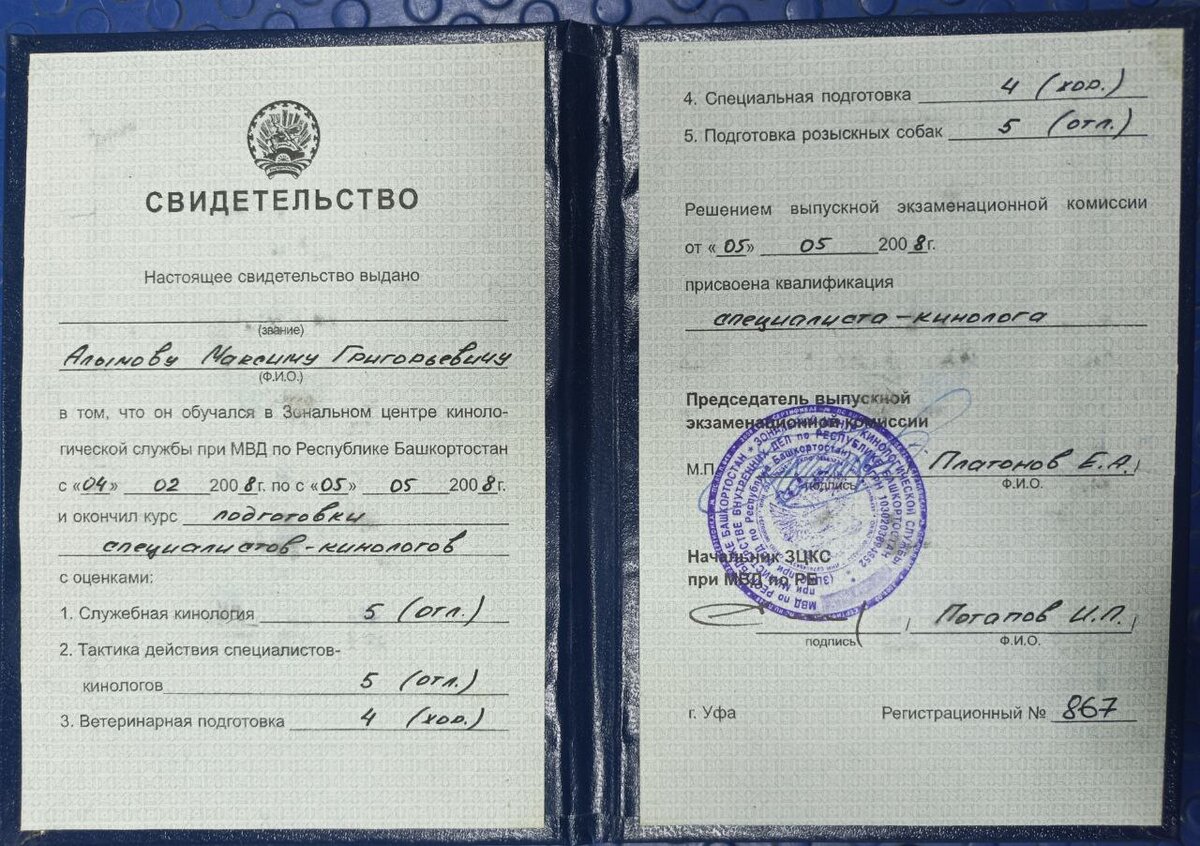 СВИДЕТЕЛЬСТВО
Настоящее свидетельство выдано
(звание)
Алымову Максиму Григорьевичу
(Ф.И.О.)
в том, что он обучался в Зональном центре киноло-
гической службы при МВД по Республике Башкортостан
с «04» 02 2008г. по с «05» 05 2008г.
и окончил курс подготовки
специалистов-кинологов
с оценками:
1. Служебная кинология 5 (отл.)
2. Тактика действия специалистов-
кинологов 5 (отл.)
3. Ветеринарная подготовка 4 (хор.)
4. Специальная подготовка 4 (хор.)
5. Подготовка розыскных собак 5 (отл.)
Решением выпускной экзаменационной комиссии
от «05» 05 2008г.
присвоена квалификация
специалиста-кинолога
Председатель выпускной
экзаменационной комиссии
М.П. / Платонов Е.А. /
подпись Ф.И.О.
Начальник ЗЦКС
при МВД по РБ
/ Потапов И.П. /
подпись Ф.И.О.
г. Уфа Регистрационный № 867